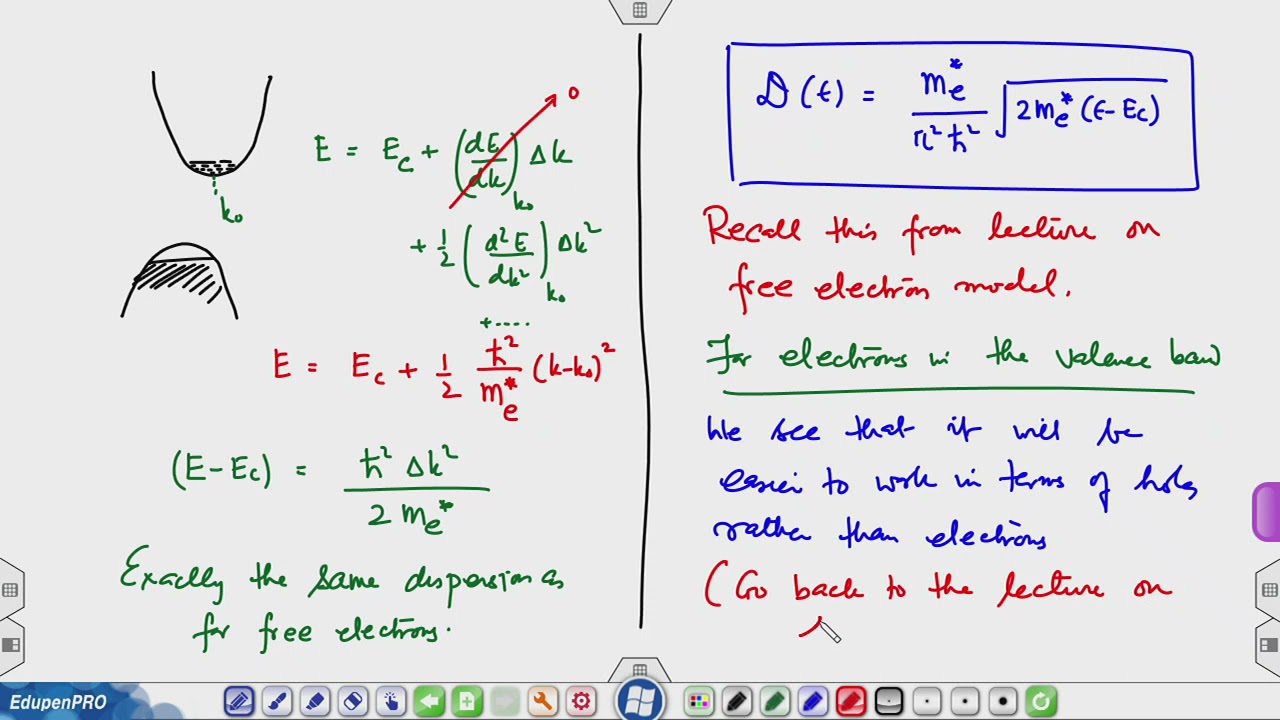 k₀
E = E_c + (dE/dk)_k₀ Δk
0
+ 1/2 (d²E/dk²)_k₀ Δk²
+ .....
E = E_c + 1/2 ħ²/m_e* (k-k₀)²
(E - E_c) = ħ² Δk² / 2 m_e*
Exactly the same dispersion as
for free electrons.
D(E) = m_e* / π² ħ³ √2m_e* (E - E_c)
Recall this from lecture on
free electron model.
For electrons in the valence band
We see that it will be
easier to work in terms of holes
rather than electrons
(Go back to the lecture on
EdupenPRO